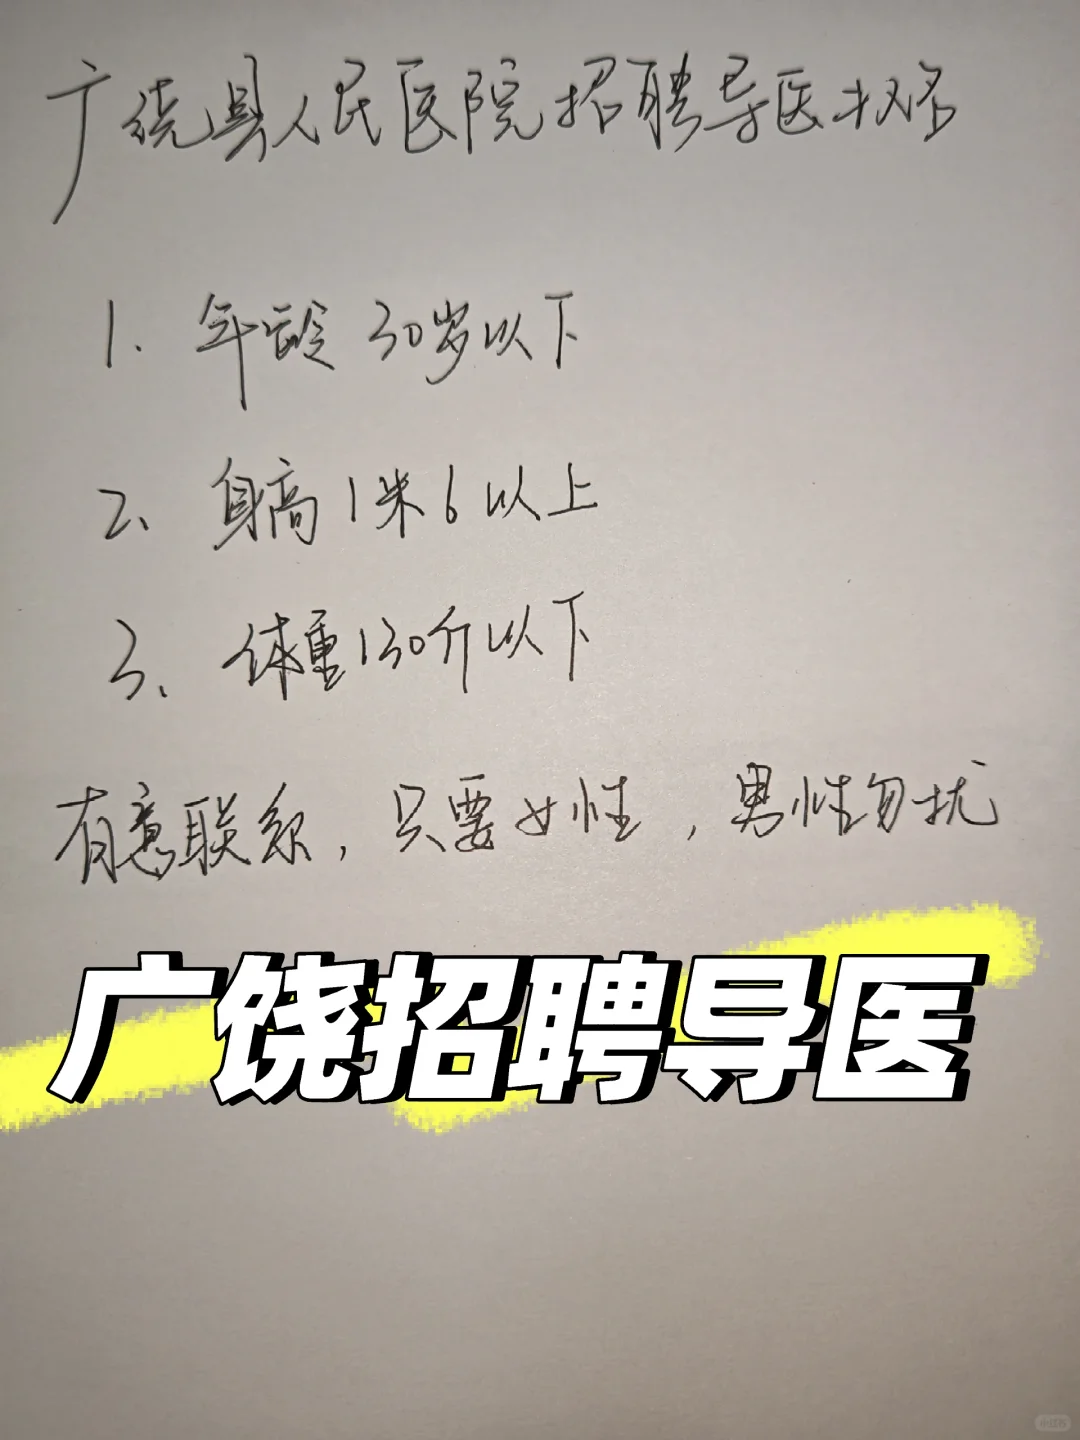 广饶县人民医院招聘导医大名
1. 年龄30岁以下
2、身高1米6以上
3、体重130斤以下
有意联系,只要女性,男性勿扰
广饶招聘导医